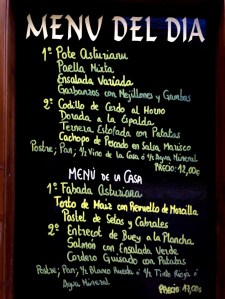 MENU DEL DIA
1º Pote Asturianu
Paella Mixta
Ensalada Variada
Garbanzos con Mejillones y Gambas
2º Codillo de Cerdo al Horno
Dorada a la Espalda
Ternera Estofada con Patatas
Cachopo de Pescado en Salsa Marisco
Postre; Pan; ½ Vino de la Casa ó ½ Agua Mineral
PRECIO: 12,00€
MENÚ DE LA CASA
1º Fabada Asturiana
Torto de Maiz con Revuelto de Morcilla
Pastel de Setas y Cabrales
2º Entrecot de Buey a la Plancha
Salmón con Ensalada Verde
Cordero Guisado con Patatas
Postre; Pan; ½ Blanco Rueda ó ½ Tinto Rioja ó
Agua Mineral
PRECIO